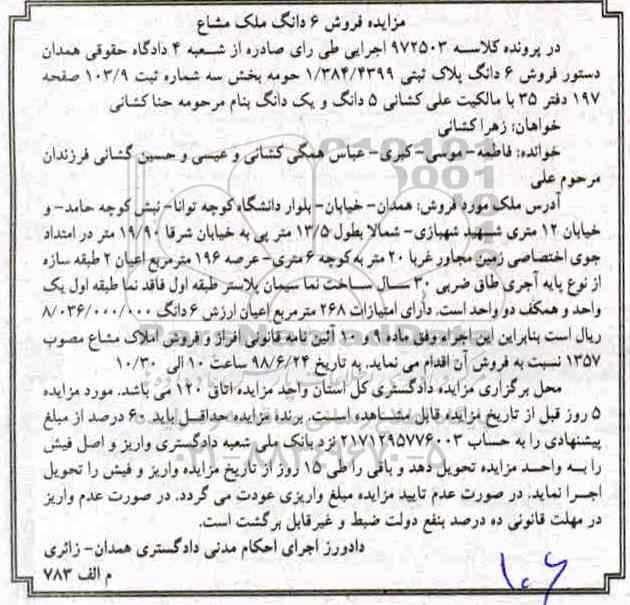 مزایده فروش ۶ دانگ ملک مشاع
در پرونده کلاسه ۹۷۲۵۰۳ اجرایی طی رای صادره از شعبه ۴ دادگاه حقوقی همدان
دستور فروش ۶ دانگ پلاک ثبتی ۱/۳۸۴/۴۳۹۹ حومه بخش سه شماره ثبت ۱۰۳/۹ صفحه
۱۹۷ دفتر ۳۵ با مالکیت علی کشانی ۵ دانگ و یک دانگ بنام مرحومه حنا کشانی
خواهان: زهرا کشانی
خوانده: فاطمه- موسی- کبری- عباس همگی کشانی و عیسی و حسین گشانی فرزندان
مرحوم علی
آدرس ملک مورد فروش: همدان- خیابان- بلوار دانشگاه کوچه توانا- نبش کوچه حامد- و
خیابان ۱۲ متری شهید شهبازی- شمالا بطول ۱۳/۵ متر پی به خیابان شرقا ۱۹/۹۰ متر در امتداد
جوی اختصاصی زمین مجاور غربا ۲۰ متر به کوچه ۶ متری- عرصه ۱۹۶ مترمربع اعیان ۲ طبقه سازه
از نوع پایه آجری طاق ضربی ۳۰ سال ساخت نما سیمان پلاستر طبقه اول فاقد نما طبقه اول یک
واحد و همکف دو واحد است. دارای امتیازات ۲۶۸ مترمربع اعیان ارزش ۶ دانگ ۸/۰۳۶/۰۰۰/۰۰۰
ریال است بنابراین این اجراء وفق ماده ۹ و ۱۰ آئین نامه قانونی افراز و فروش املاک مشاع مصوب
۱۳۵۷ نسبت به فروش آن اقدام می نماید. به تاریخ ۹۸/۶/۲۴ ساعت ۱۰ الی ۱۰/۳۰
محل برگزاری مزایده دادگستری کل استان واحد مزایده اتاق ۱۲۰ می باشد. مورد مزایده
۵ روز قبل از تاریخ مزایده قابل مشاهده است. برنده مزایده حداقل باید ۶۰ درصد از مبلغ
پیشنهادی را به حساب ۲۱۷۱۲۹۵۷۷۶۰۰۳ نزد بانک ملی شعبه دادگستری واریز و اصل فیش
را به واحد مزایده تحویل دهد و باقی را طی ۱۵ روز از تاریخ مزایده واریز و فیش را تحویل
اجرا نماید. در صورت عدم تایید مزایده مبلغ واریزی عودت می گردد. در صورت عدم واریز
در مهلت قانونی ده درصد بنفع دولت ضبط و غیرقابل برگشت است.
دادورز اجرای احکام مدنی دادگستری همدان- زائری
م الف ۷۸۳
۱۰۶